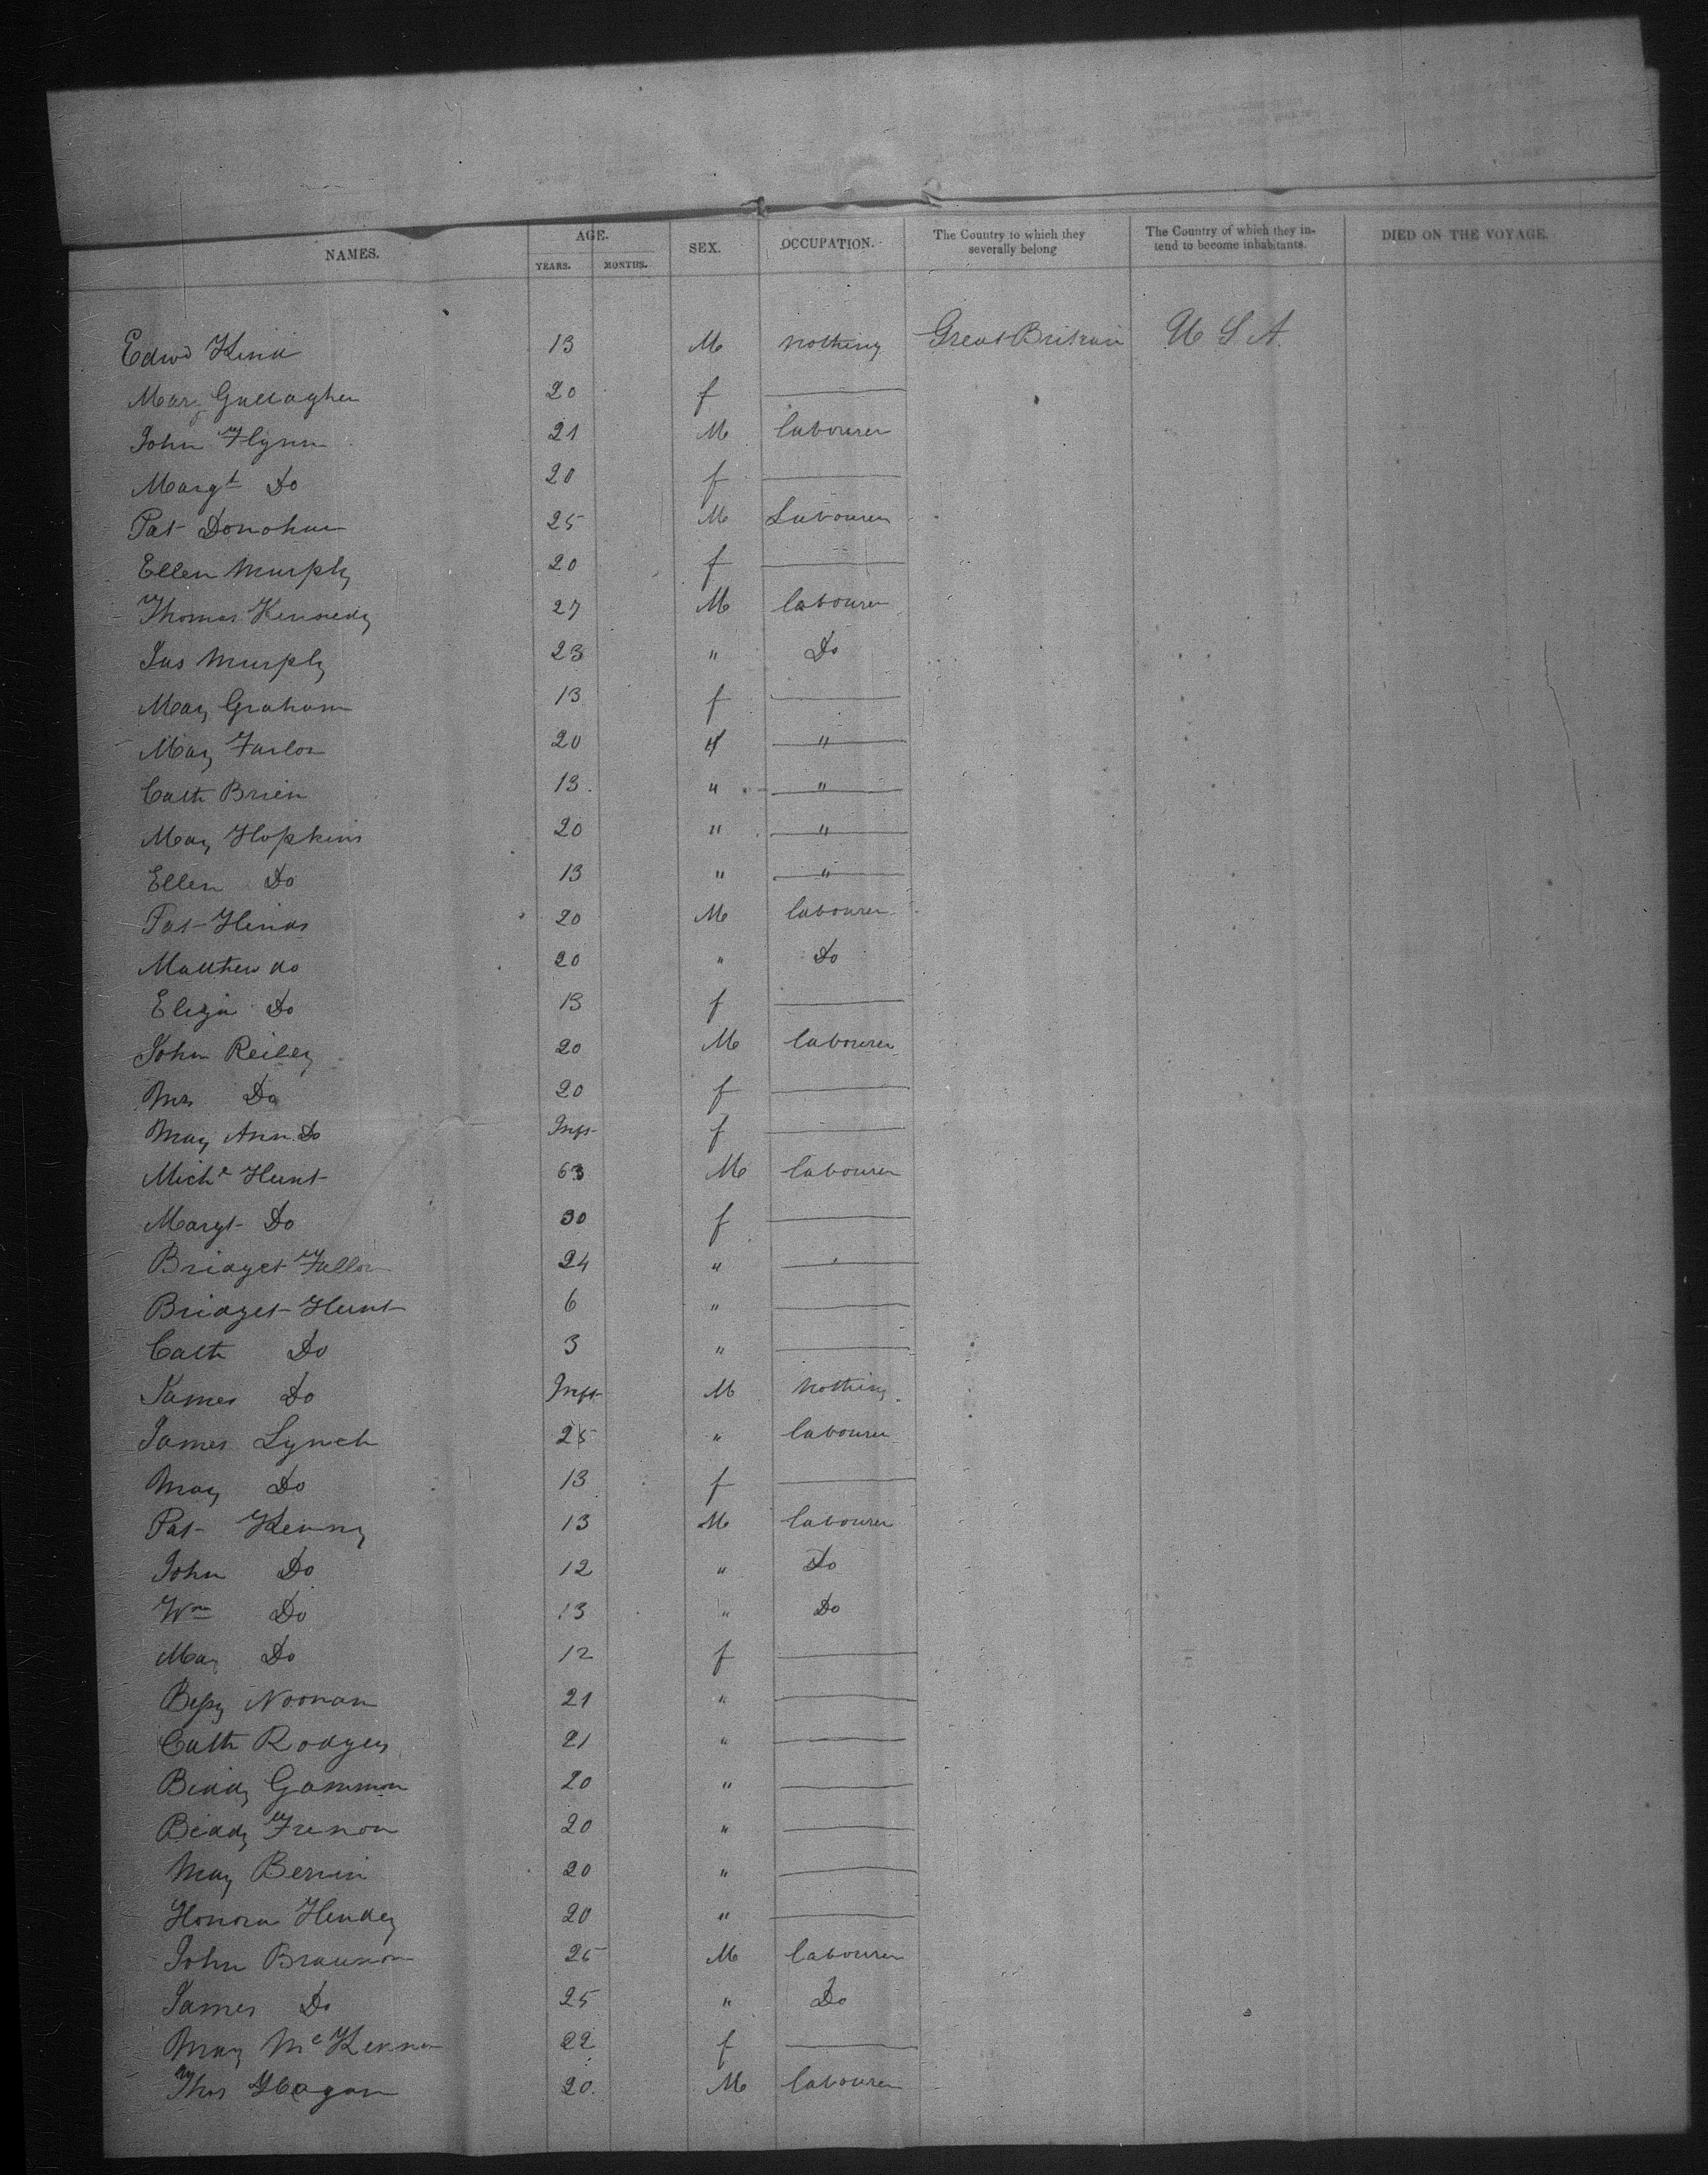 NAMES. AGE. YEARS. MONTHS. SEX. OCCUPATION. The Country to which they severally belong The Country of which they intend to become inhabitants. DIED ON THE VOYAGE.
Edwd 13 M nothing Great Britain U S A
Mary Gallagher 20 f
John Flynn 21 M labourer
Margt Do 20 f
Pat Donohue 25 M Labourer
Ellen Murphy 20 f
Thomas Kennedy 27 M labourer
Jas Murphy 23 " Do
Mary Graham 13 f
Mary 20 "
Cath Brien 13 " "
Mary Hopkins 20 " "
Ellen Do 13 " "
Pat Hinds 20 M labourer
Matthew do 20 " Do
Eliza Do 13 f
John Reiley 20 M labourer
Mrs Do 20 f
Mary Ann Do Inft f
Michl Hunt 63 M labourer
Margt Do 30 f
Bridget Fallon 24 "
Bridget Hunt 6 "
Cath Do 3 "
James Do Inft M nothing
James Lynch 25 " labourer
Mary Do 13 f
Pat Kenny 13 M labourer
John Do 12 " Do
Wm Do 13 " Do
Mary Do 12 f
Bessy Noonan 21 "
Cath Rodgers 21 "
Biddy Gammon 20 "
Biddy 20 "
Mary 20 "
Honora 20 "
John Brannon 25 M labourer
James Do 25 " Do
Mary McKenna 22 f
Thos Hagan 20 M labourer